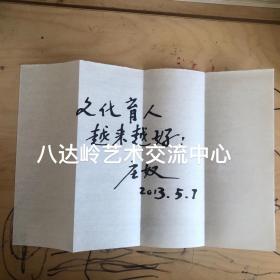 文化育人
越来越好！
八达岭艺术交流中心
庄奴
2013.5.7